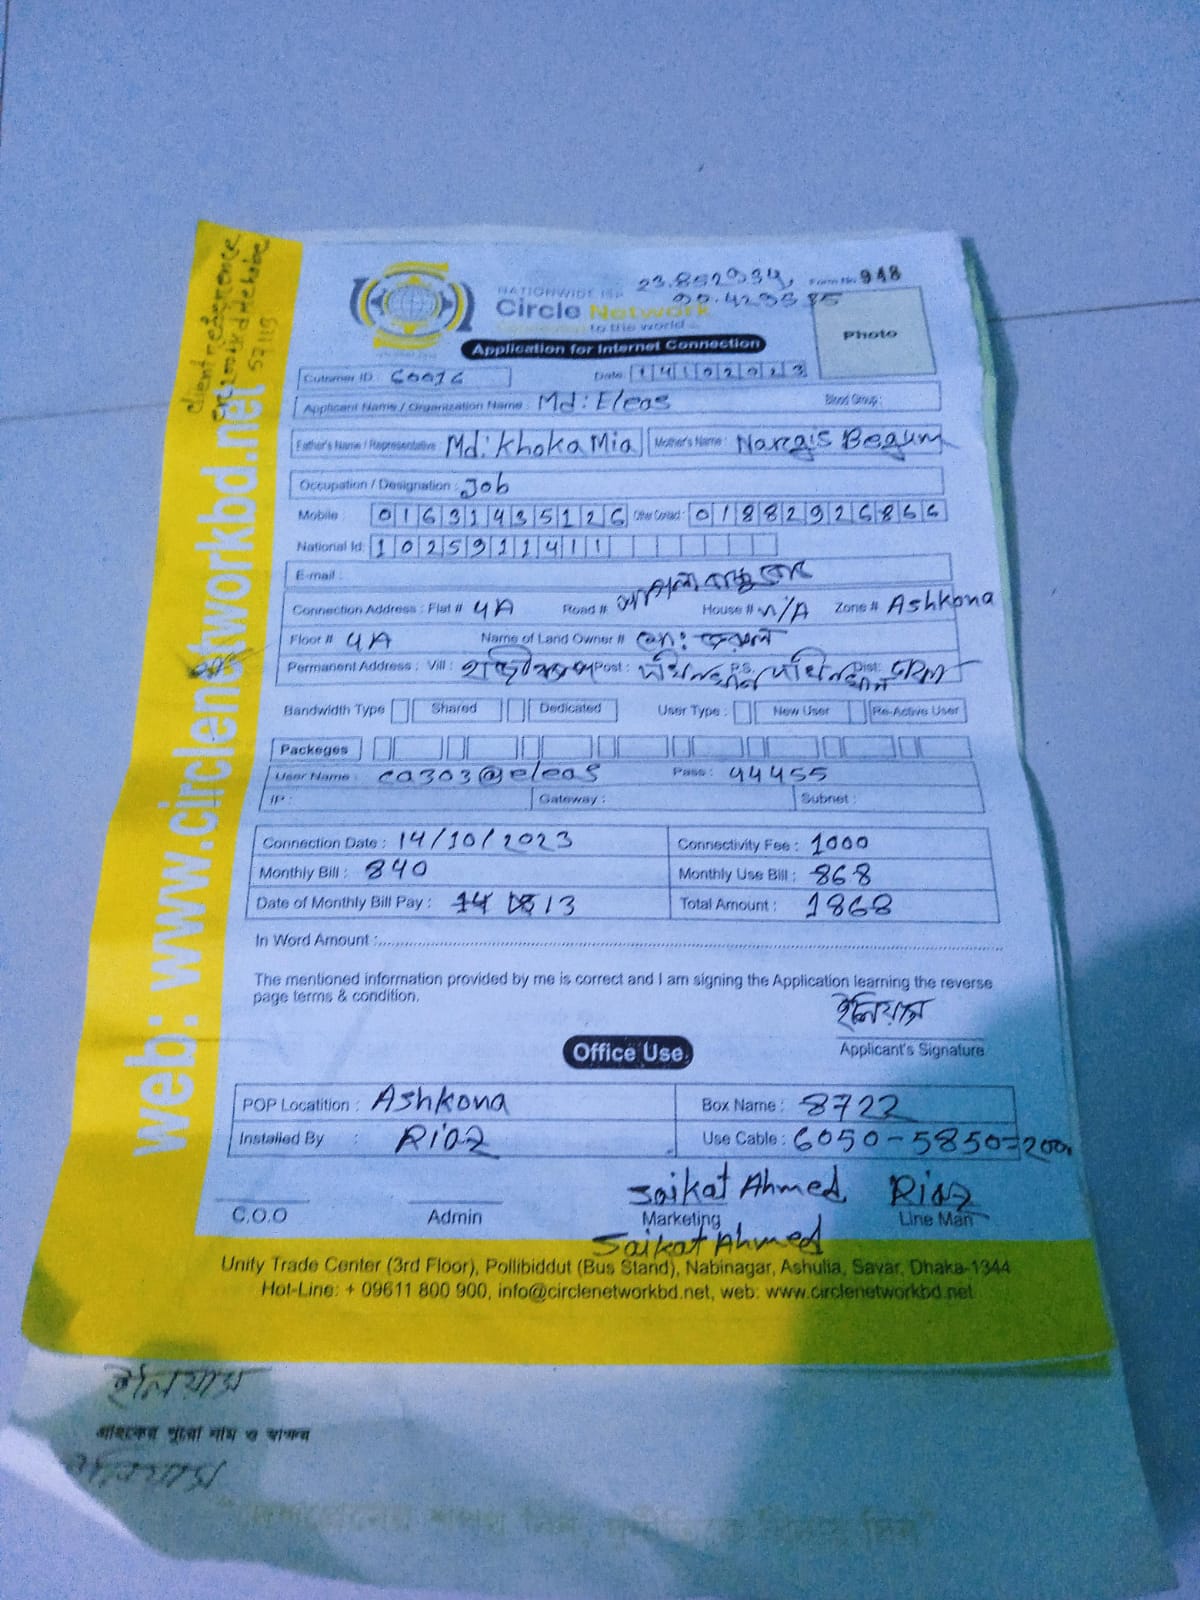 client reference
57119
NATIONWIDE ISP
Circle Network
to the world
23.852934,
90.423585
Form No. 948
Photo
Application for Internet Connection
Cutomer ID : 60016
Date: 14102023
Applicant Name / Organization Name : Md: Eleas
Blood Group :
Father's Name / Representative Md: Khoka Mia
Mother's Name : Nargis Begum
Occupation / Designation : Job
Mobile : 01631435126
Other Contact : 01882926866
National Id: 1025911411
E-mail :
Connection Address : Flat # 4A Road # House # N/A Zone # Ashkona
Floor # 4A Name of Land Owner #
Permanent Address : Vill : Post : P.S. Dist:
Bandwidth Type Shared Dedicated User Type : New User Re-Active User
Packeges
User Name : ca303@eleas Pass : 44455
IP : Gateway : Subnet :
Connection Date : 14/10/2023 Connectivity Fee : 1000
Monthly Bill : 840 Monthly Use Bill : 868
Date of Monthly Bill Pay : 13 Total Amount : 1868
In Word Amount :
The mentioned information provided by me is correct and I am signing the Application learning the reverse
page terms & condition.
ইলিয়াস
Applicant's Signature
Office Use
POP Locatition : Ashkona Box Name : 8722
Installed By : Riaz Use Cable : 6050-5850=200
Saikat Ahmed Riaz
C.O.O Admin Marketing Line Man
Saikat Ahmed
Unity Trade Center (3rd Floor), Pollibiddut (Bus Stand), Nabinagar, Ashulia, Savar, Dhaka-1344
Hot-Line: + 09611 800 900, info@circlenetworkbd.net, web: www.circlenetworkbd.net
web: www.circlenetworkbd.net
ইলিয়াস
গ্রাহকের পুরো নাম ও স্বাক্ষর